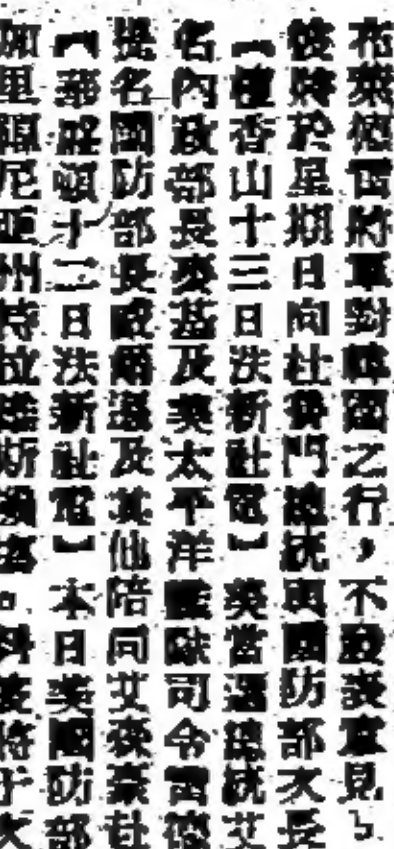 布萊德雷將軍對韓國之行，不發表意見，
彼將於星期日向杜魯門總統與國防部大長
【檀香山十三日法新社電】美當選總統艾
名內政部長麥基及美太平洋艦隊司令雷德
提名國防部長威爾遜及其他陪同艾森豪赴
【華盛頓十二日法新社電】本日美國防部
加里福尼亞州特拉維斯 。 將于大